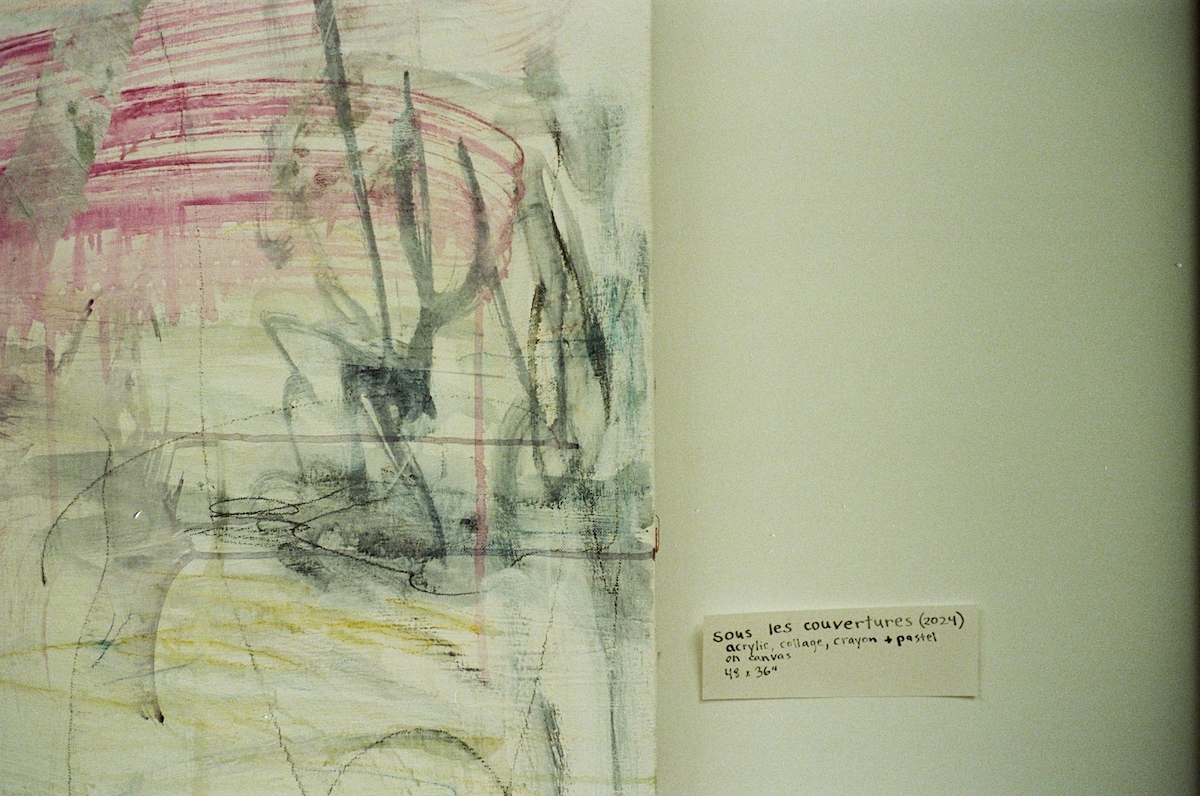 sous les couvertures (2024)
acrylic, collage, crayon + pastel
on canvas
48 x 36"